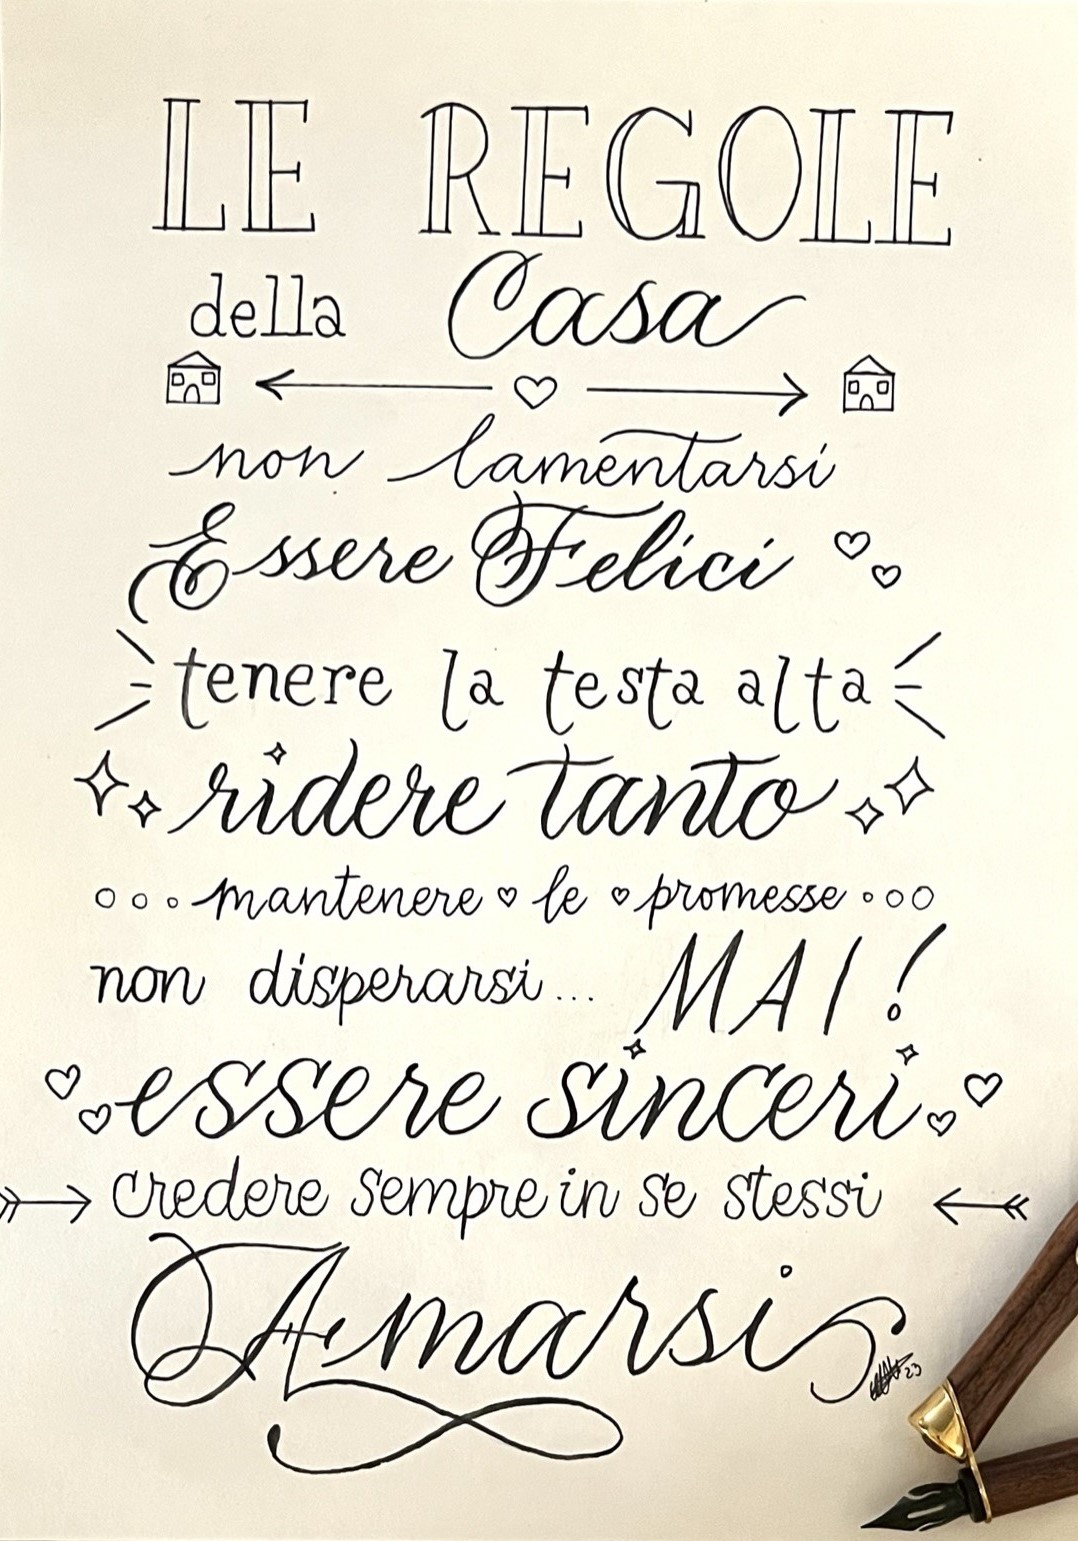 LE REGOLE
della Casa
non lamentarsi
Essere Felici
tenere la testa alta
ridere tanto
mantenere le promesse
non disperarsi... MAI!
essere sinceri
credere sempre in se stessi
Amarsi
23